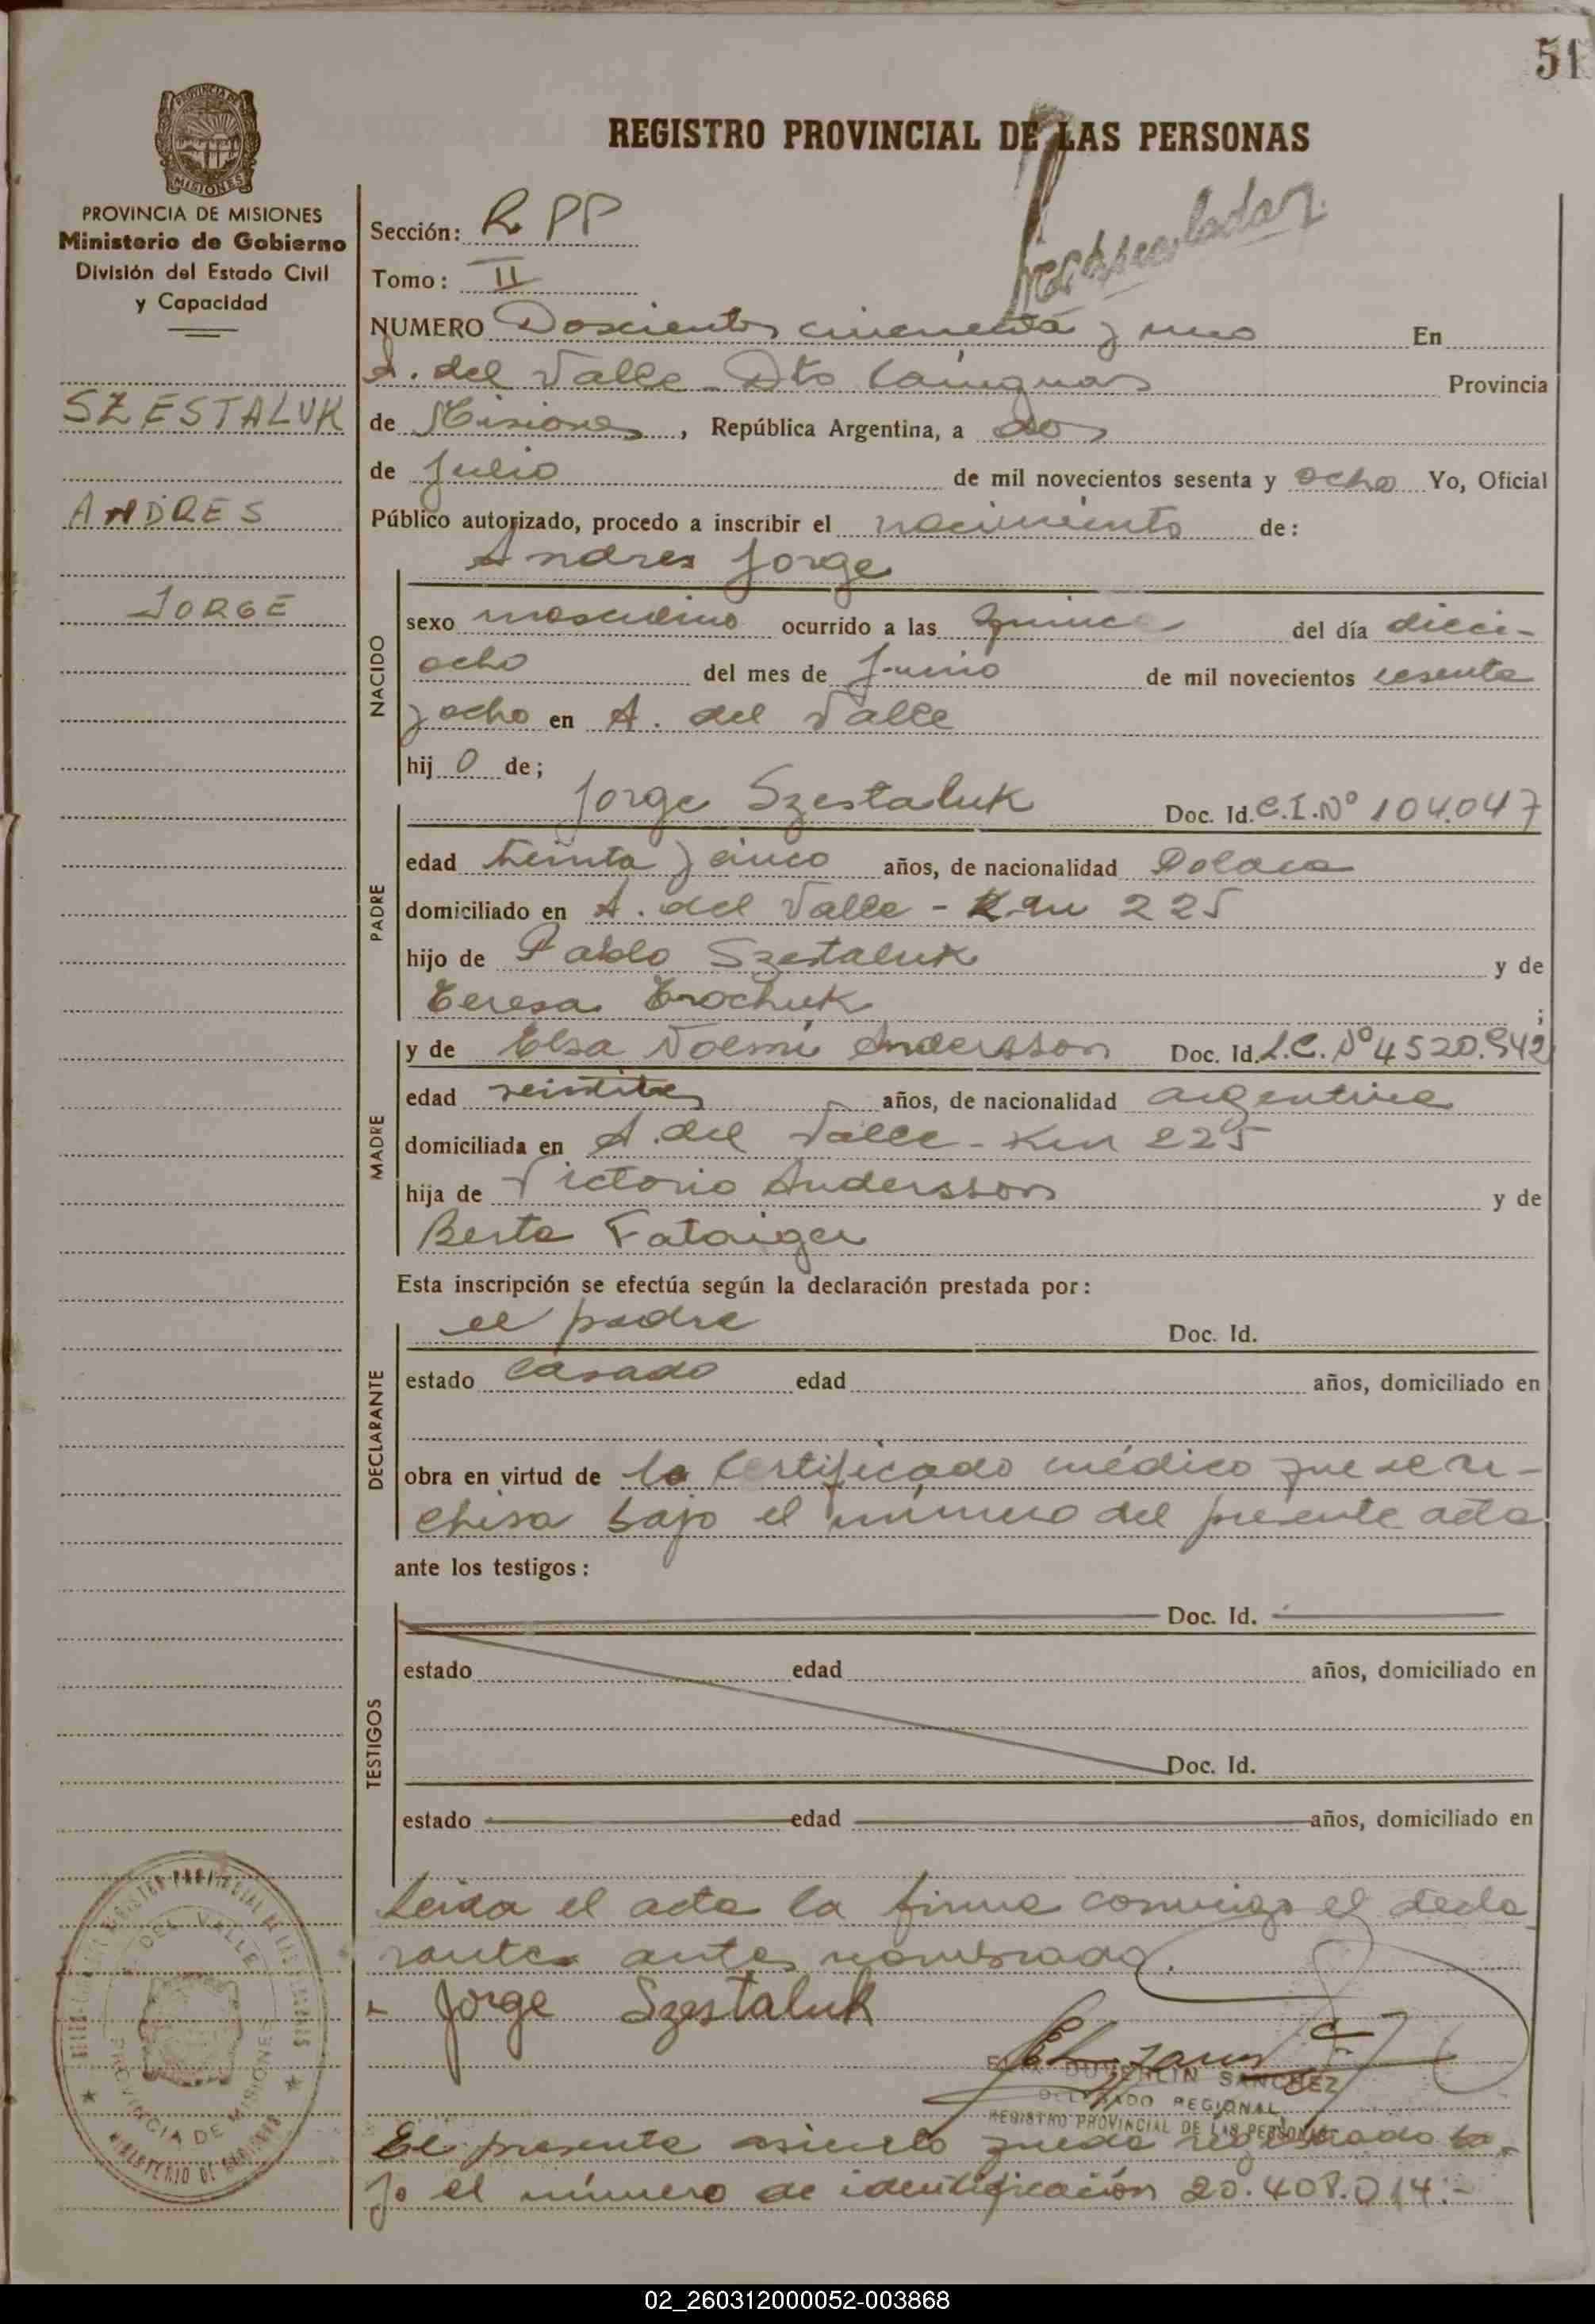 51
REGISTRO PROVINCIAL DE LAS PERSONAS
MISIONES
PROVINCIA DE MISIONES
Ministerio de Gobierno
División del Estado Civil
y Capacidad
SZESTALUK
ANDRES
JORGE
Sección: R PP
Tomo: II
NUMERO Doscientos cincuenta y uno En
A. del Valle - Dto Cainguas Provincia
de Misiones, República Argentina, a dos
de Julio de mil novecientos sesenta y ocho Yo, Oficial
Público autorizado, procedo a inscribir el nacimiento de:
Andres Jorge
NACIDO
sexo masculino ocurrido a las quince del día dieci-
ocho del mes de Junio de mil novecientos sesenta
y ocho en A. del Valle
hij o de;
Jorge Szestaluk Doc. Id. C.I. Nº 104.047
PADRE
edad treinta y cinco años, de nacionalidad Polaca
domiciliado en A. del Valle - Km 225
hijo de Pablo Szestaluk y de
Teresa Trochuk;
MADRE
y de Elsa Noemí Andersson Doc. Id. L.C. Nº 4520.942
edad veintitres años, de nacionalidad argentina
domiciliada en A. del Valle - Km 225
hija de Victorio Andersson y de
Berta
Esta inscripción se efectúa según la declaración prestada por:
DECLARANTE
el padre Doc. Id.
estado casado edad años, domiciliado en
obra en virtud de lo certificado médico que se ar-
chiva bajo el número del presente acta
ante los testigos:
TESTIGOS
Doc. Id.
estado edad años, domiciliado en
Doc. Id.
estado edad años, domiciliado en
Leida el acta la firma conmigo el decla
rante antes nombrado.
Jorge Szestaluk
SANCHEZ
DELEGADO REGIONAL
REGISTRO PROVINCIAL DE LAS PERSONAS
DEL VALLE
PROVINCIA DE MISIONES
MINISTERIO DE GOBIERNO
El presente asiento queda registrado ba-
jo el número de identificación 20.408.014.-
02_260312000052-003868